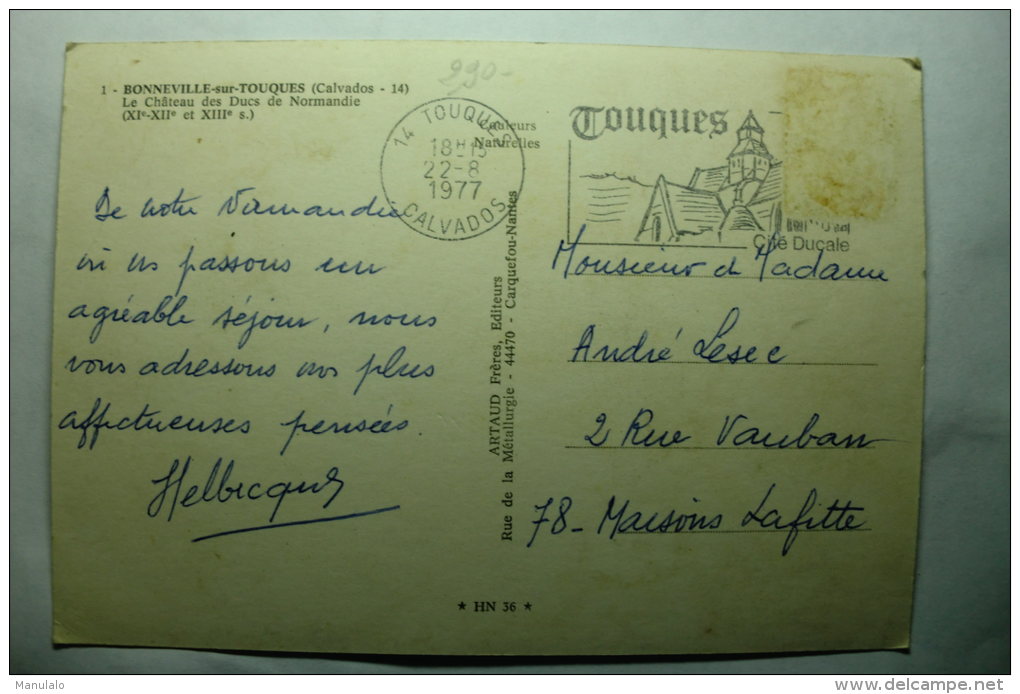 990-
1 - BONNEVILLE-sur-TOUQUES (Calvados - 14)
Le Château des Ducs de Normandie
(XIe-XIIe et XIIIe s.)
Couleurs
Naturelles
14 TOUQUES
18H15
22-8
1977
CALVADOS
Touques
Cité Ducale
De notre Normandie
où ns passons un
agréable séjour, nous
vous adressons nos plus
affectueuses pensées.
Helbecque
ARTAUD Frères, Editeurs
Rue de la Métallurgie - 44470 - Carquefou-Nantes
Monsieur et Madame
André Lesec
2 Rue Vauban
78 - Maisons Lafitte
★ HN 36 ★
Manulalo
www.delcampe.net